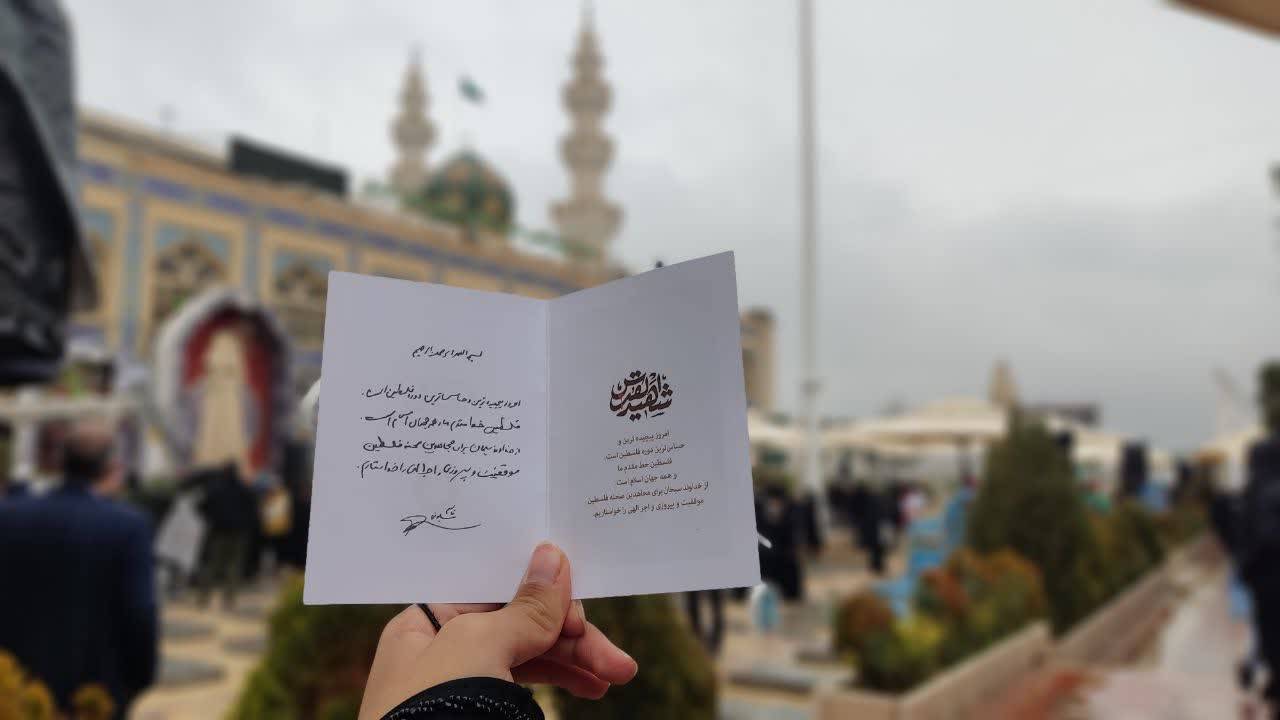 شهید القدس
امروز پیچیده ترین و
حساس ترین دوره فلسطین است.
فلسطین خط مقدم ما
و همه جهان اسلام است
از خداوند سبحان برای مجاهدین صحنه فلسطین
موفقیت و پیروزی و اجر الهی را خواستاریم.
بسم الله الرحمن الرحیم
امروز پیچیده ترین و حساس ترین دوره فلسطین است.
فلسطین خط مقدم ما و همه جهان اسلام است
از خداوند سبحان برای مجاهدین صحنه فلسطین
موفقیت و پیروزی و اجر الهی را خواستارم.